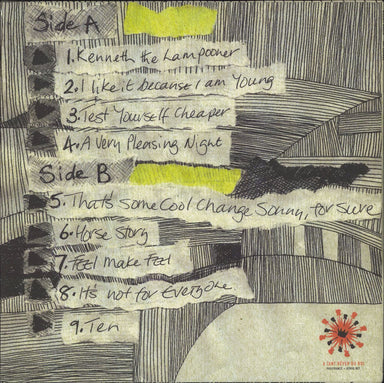 Side A
1. Kenneth the Lampooner
2. I like it because I am Young
3. Test Yourself Cheaper
4. A Very Pleasing Night
Side B
5. That's some Cool Change Sonny, for sure
6. Horse Story
7. Feel Make Feel
8. It's not for Everyone
9. Ten